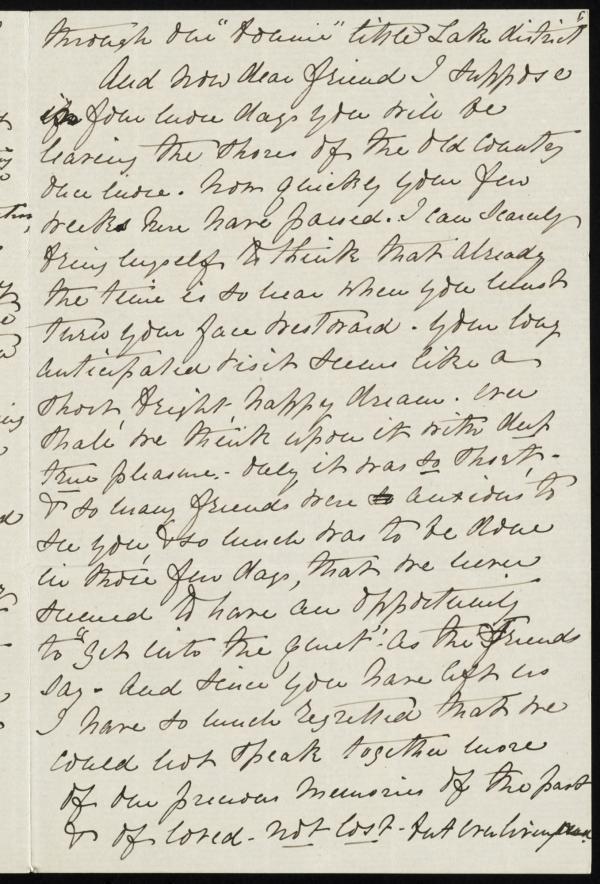 through our "bonnie" little Lake district
And now dear friend I suppose
in four more days you will be
leaving the shores of the Old Country
once more. How quickly your few
weeks here have passed. I can scarcely
bring myself to think that already
the time is so near when you must
turn your face westward. Your long
anticipated visit seems like a
short, bright, happy dream. Ever
shall we think upon it with deep
true pleasure. - Only it was so short, -
& so many friends were so anxious to
see you, & so much was to be done
in those few days, that we never
seemed to have an opportunity
to "get into the quiet" - as the Friends
say - And since you have left us
I have so much regretted that we
could not speak together more
of our precious memories of the past
& of loved - not lost - but ever living